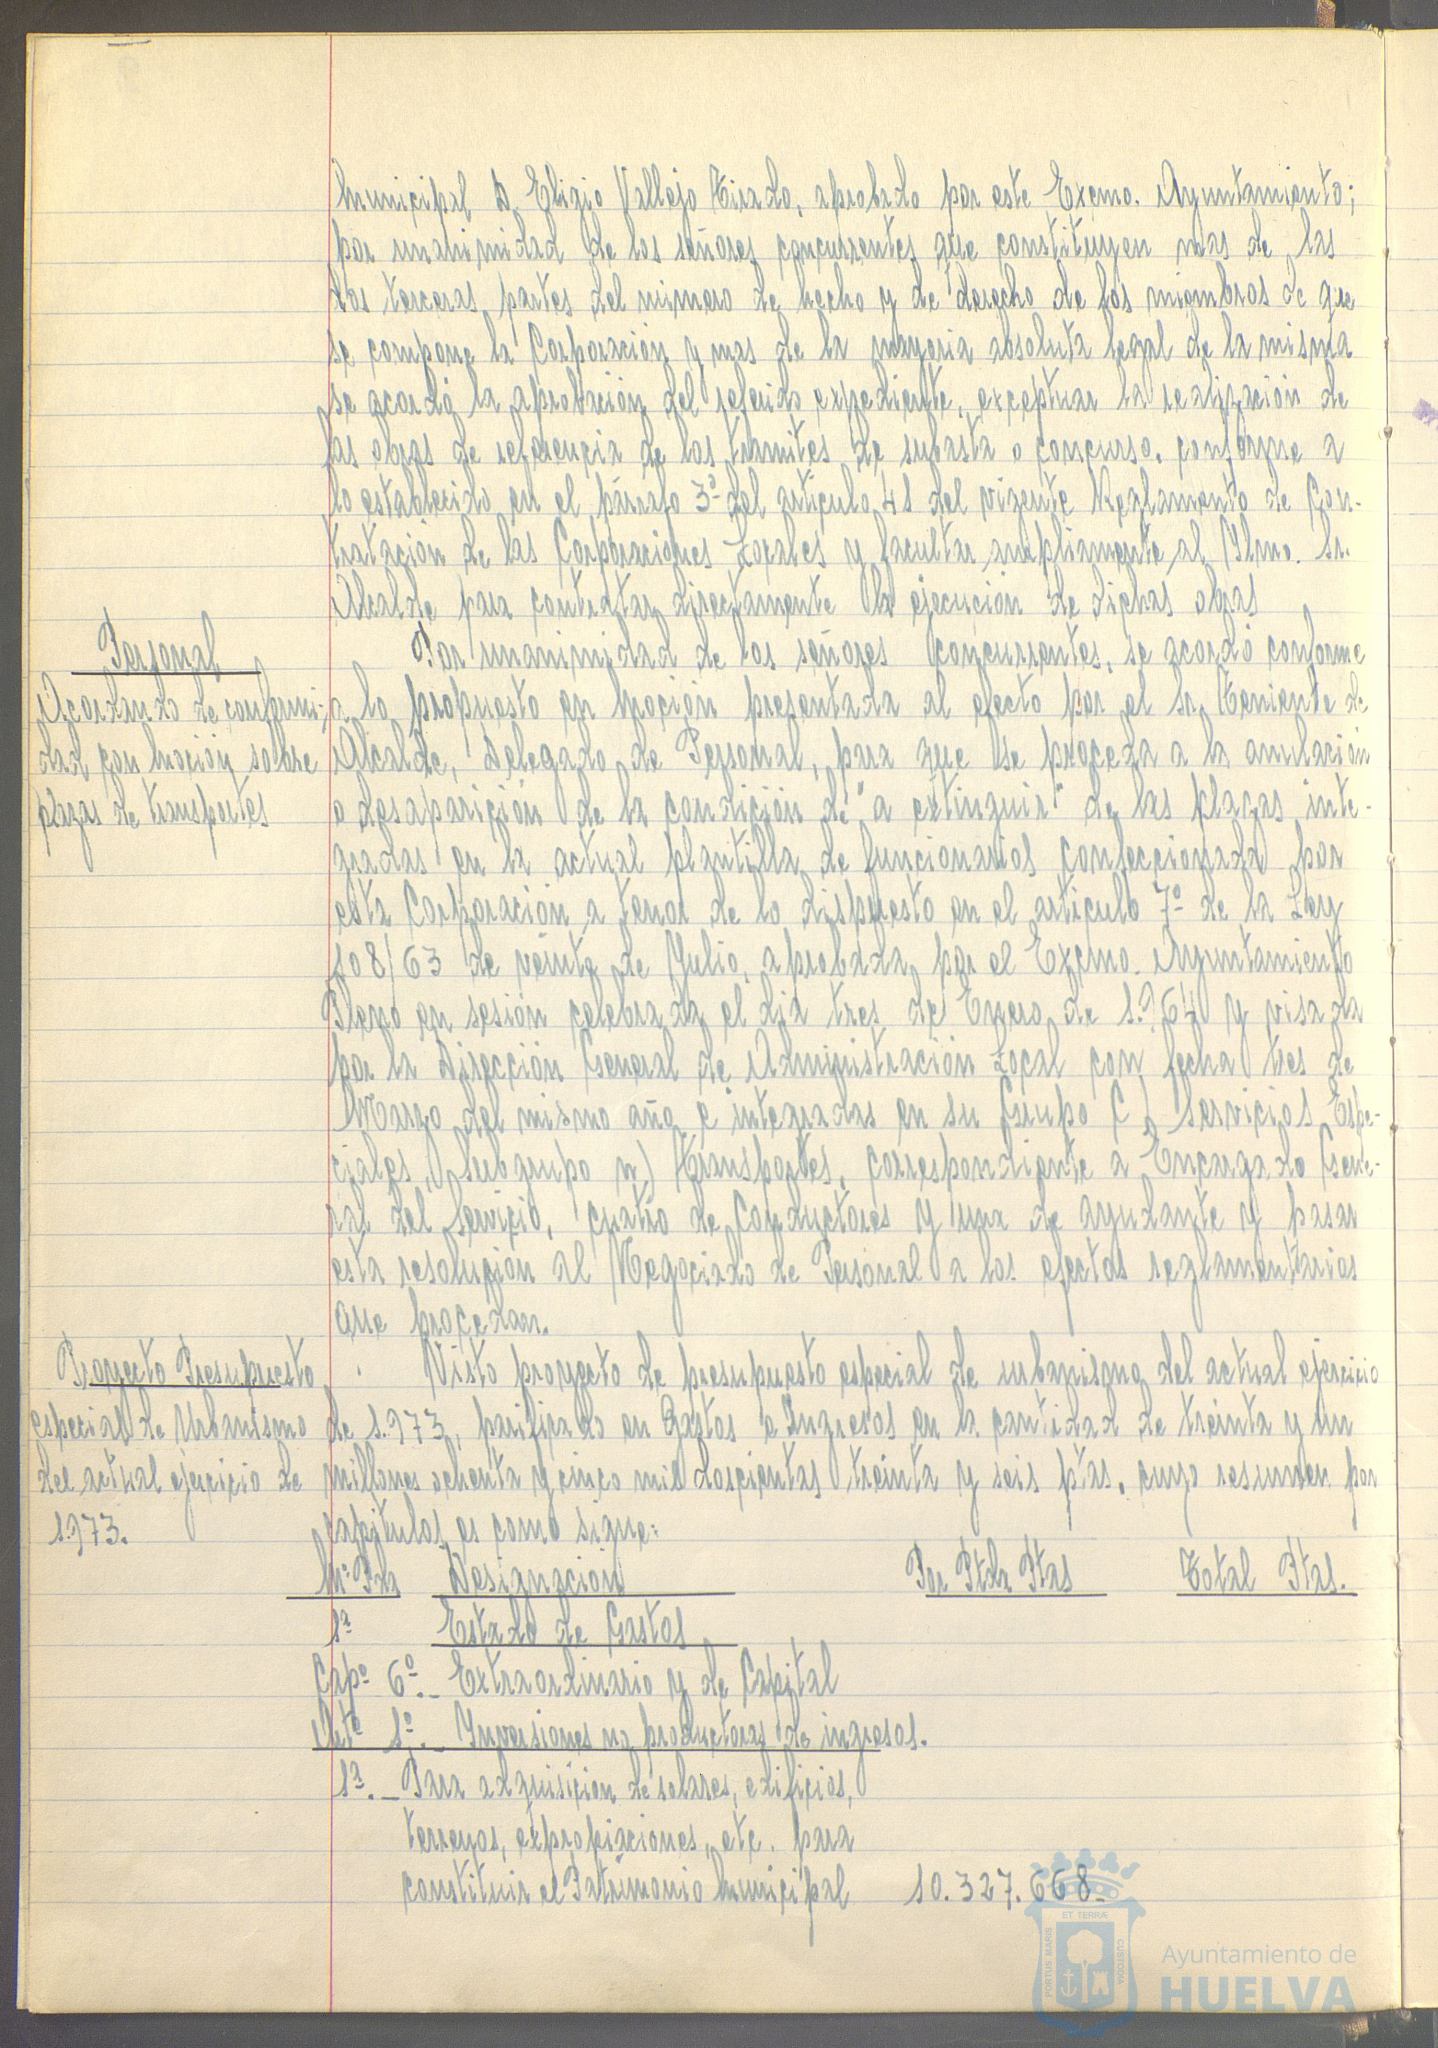 Municipal D. Eligio Vallejo Tirado, aprobado por este Excmo. Ayuntamiento;
por unanimidad de los señores concurrentes que constituyen mas de las
dos terceras partes del número de hecho y de derecho de los miembros de que
se compone la Corporación y mas de la mayoria absoluta legal de la misma
se acordó la aprobación del referido expediente, exceptuar la realización de
las obras de referencia de los tramites de subasta o concurso, conforme a
lo establecido en el párrafo 3º del artículo 41 del vigente Reglamento de Con-
tratación de las Corporaciones Locales y facultar ampliamente al Iltmo. Sr.
Alcalde para contratar directamente la ejecución de dichas obras
Personal
Acordando de conformi-
dad con moción sobre
plazas de transportes
Por unanimidad de los señores concurrentes, se acordó conforme
a lo propuesto en moción presentada al efecto por el Sr. Teniente de
Alcalde, Delegado de Personal, para que se proceda a la anulación
o desaparición de la condición de "a extinguir" de las plazas inte-
gradas en la actual plantilla de funcionarios confeccionada por
esta Corporación a tenor de lo dispuesto en el artículo 7º de la Ley
108/63 de veinte de Julio, aprobada por el Excmo. Ayuntamiento
Pleno en sesión celebrada el dia tres de Enero de 1.964 y visada
por la Dirección General de Administración Local con fecha tres de
Marzo del mismo año e integradas en su Grupo C) Servicios Espe-
ciales, Subgrupo n) Transportes, correspondiente a Encargado Gene-
ral del Servicio, cuatro de Conductores y una de ayudante y pasar
esta resolución al Negociado de Personal a los efectos reglamentarios
que procedan.
Proyecto Presupuesto
especial de Urbanismo
del actual ejercicio de
1.973.
Visto proyecto de presupuesto especial de urbanismo del actual ejercicio
de 1.973, pacificado en Gastos e Ingresos en la cantidad de treinta y un
millones ochenta y cinco mil doscientas treinta y seis ptas, cuyo resumen por
capítulos es como sigue:
Nº Pda Designación Por Ptda Ptas Total Ptas.
1ª Estado de Gastos
Capº 6º.- Extraordinario y de Capital
Artº 1º.- Inversiones no productoras de ingresos.
1ª.- Para adquisición de solares, edificios,
terrenos, expropiaciones, etc. para
constituir el Patrimonio Municipal 10.327.668-
ET TERRÆ
PORTUS MARIS
CUSTODIA
Ayuntamiento de
HUELVA